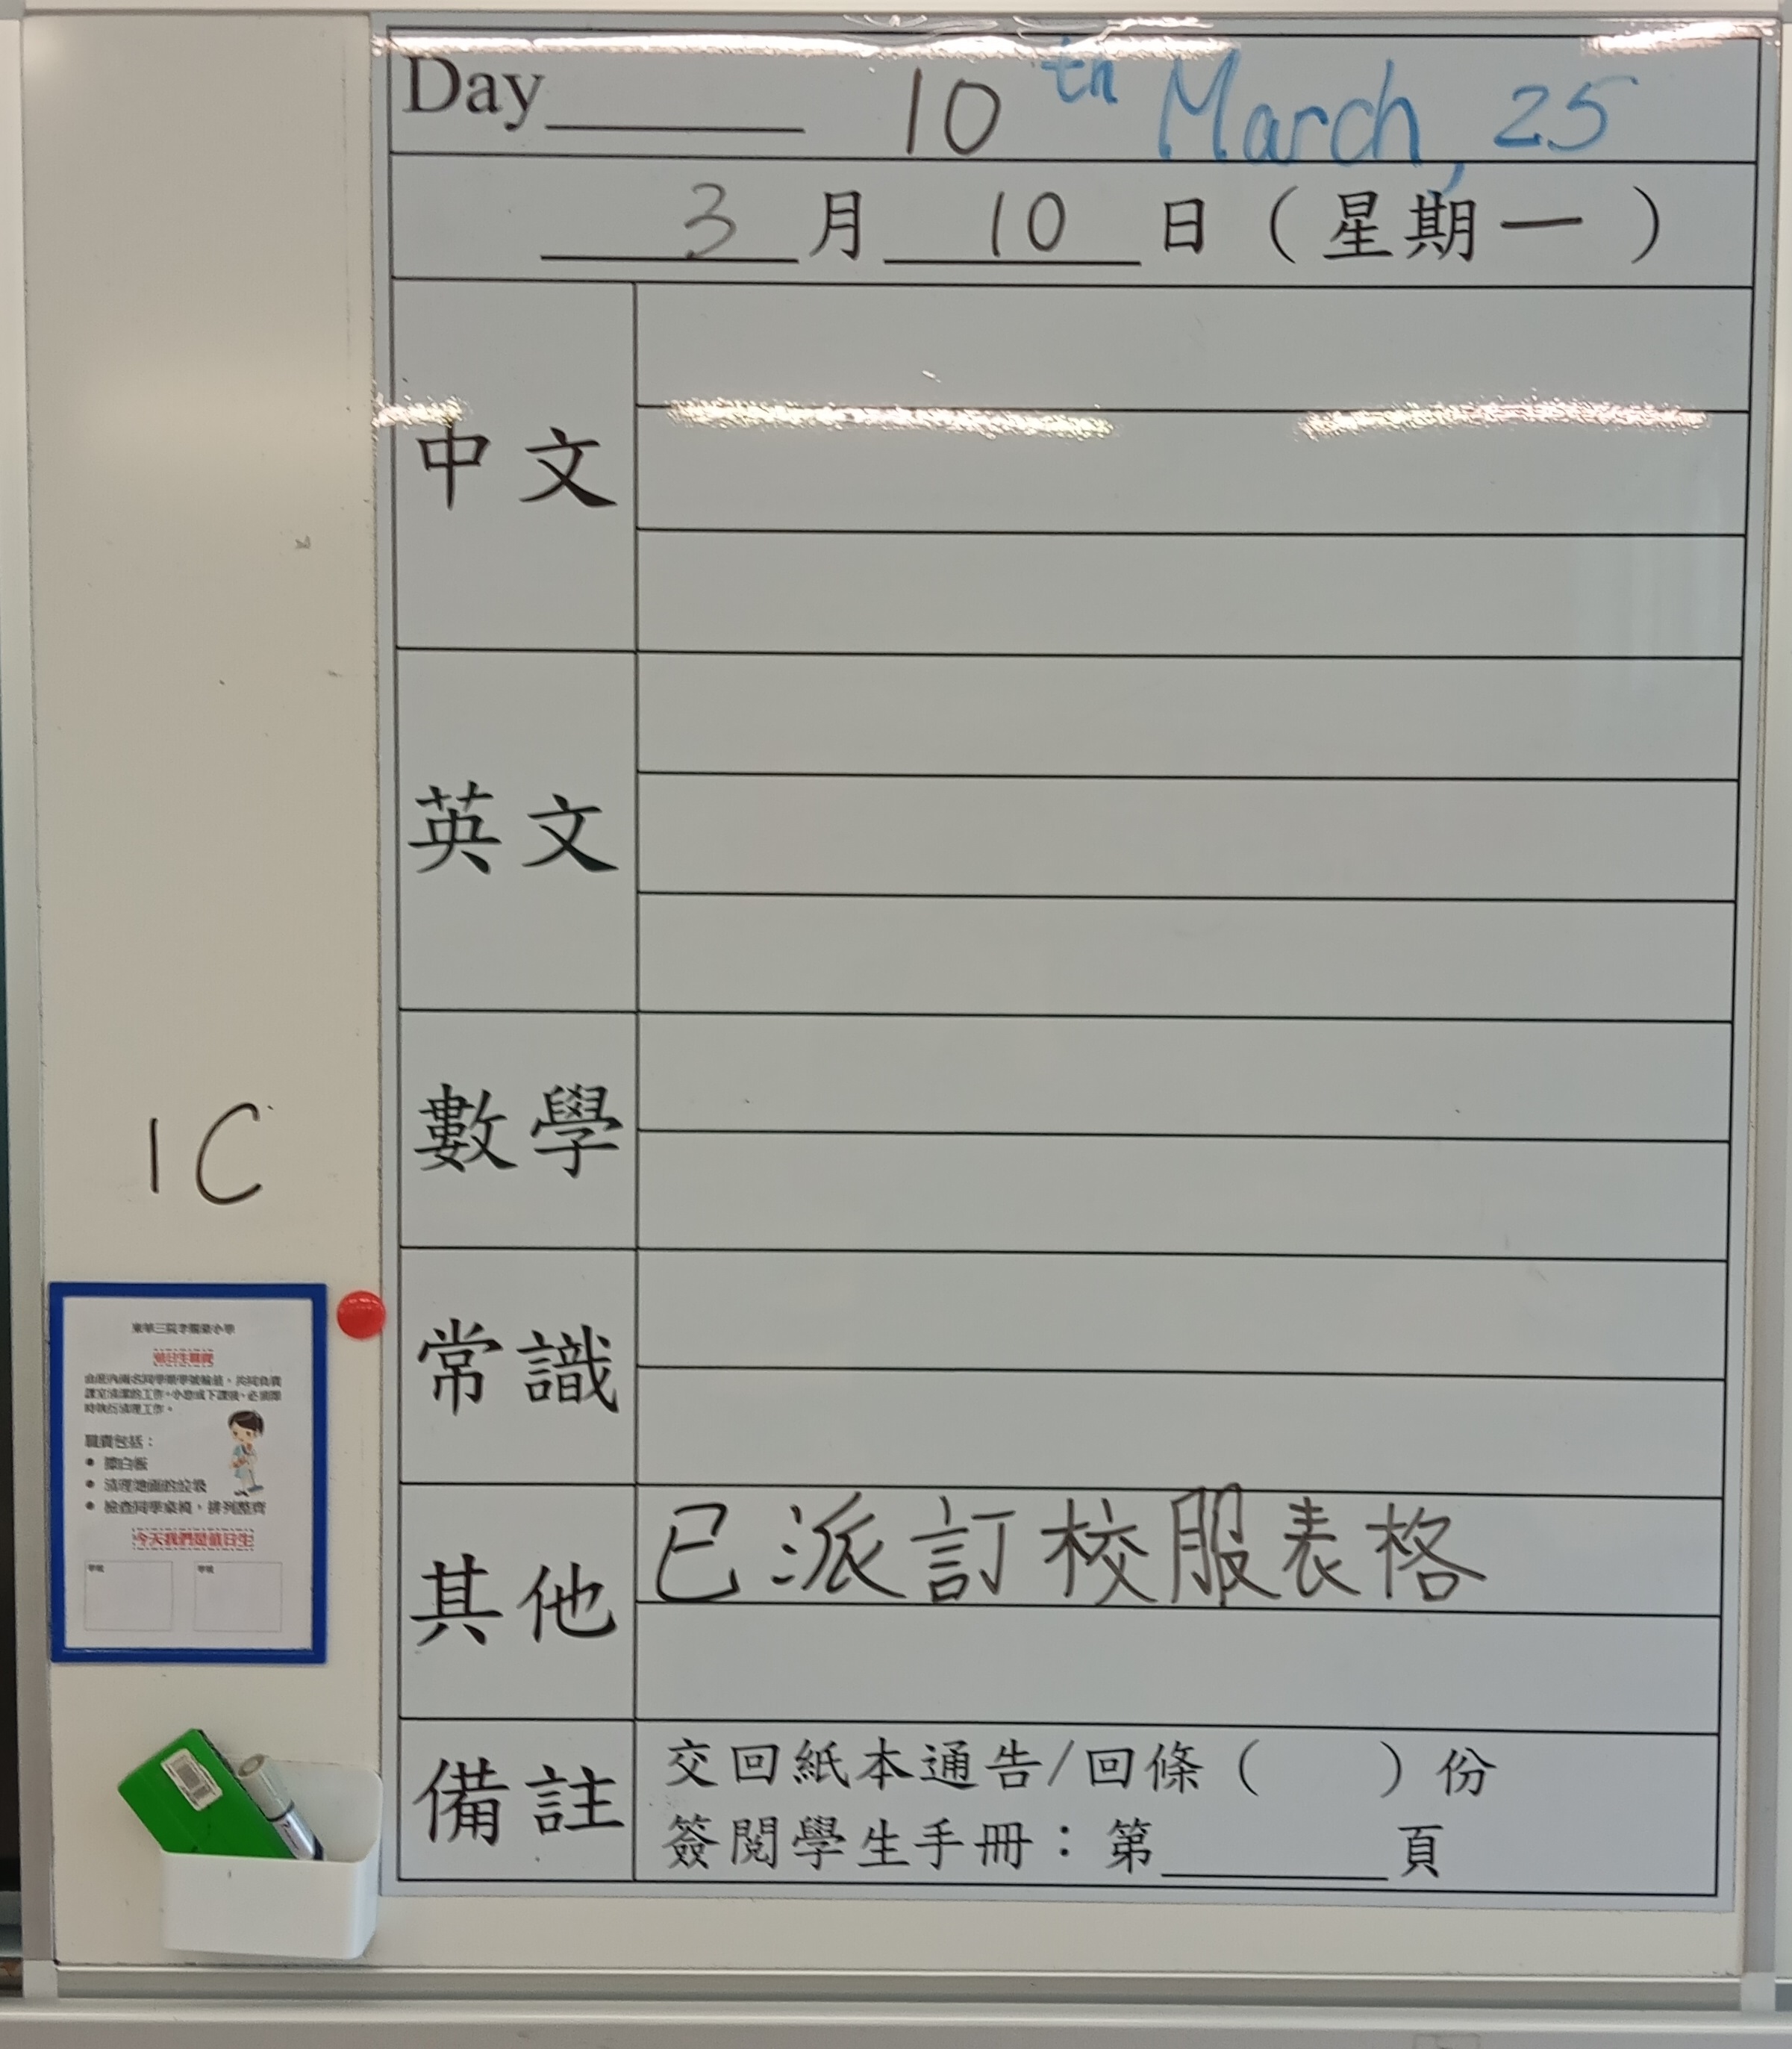 Day______ 10th March, 25
3月10日（星期一）
中文
英文
數學
常識
其他 已派訂校服表格
備註 交回紙本通告/回條（　　）份
簽閱學生手冊：第______頁
1C
值日生職責
由班內兩名同學順學號輪值，共同負責
課室清潔的工作。小息或下課後，必須即
時執行清理工作。
職責包括：
• 擦白板
• 清理地面的垃圾
• 檢查同學桌椅，排列整齊
今天我們是值日生
學號 學號